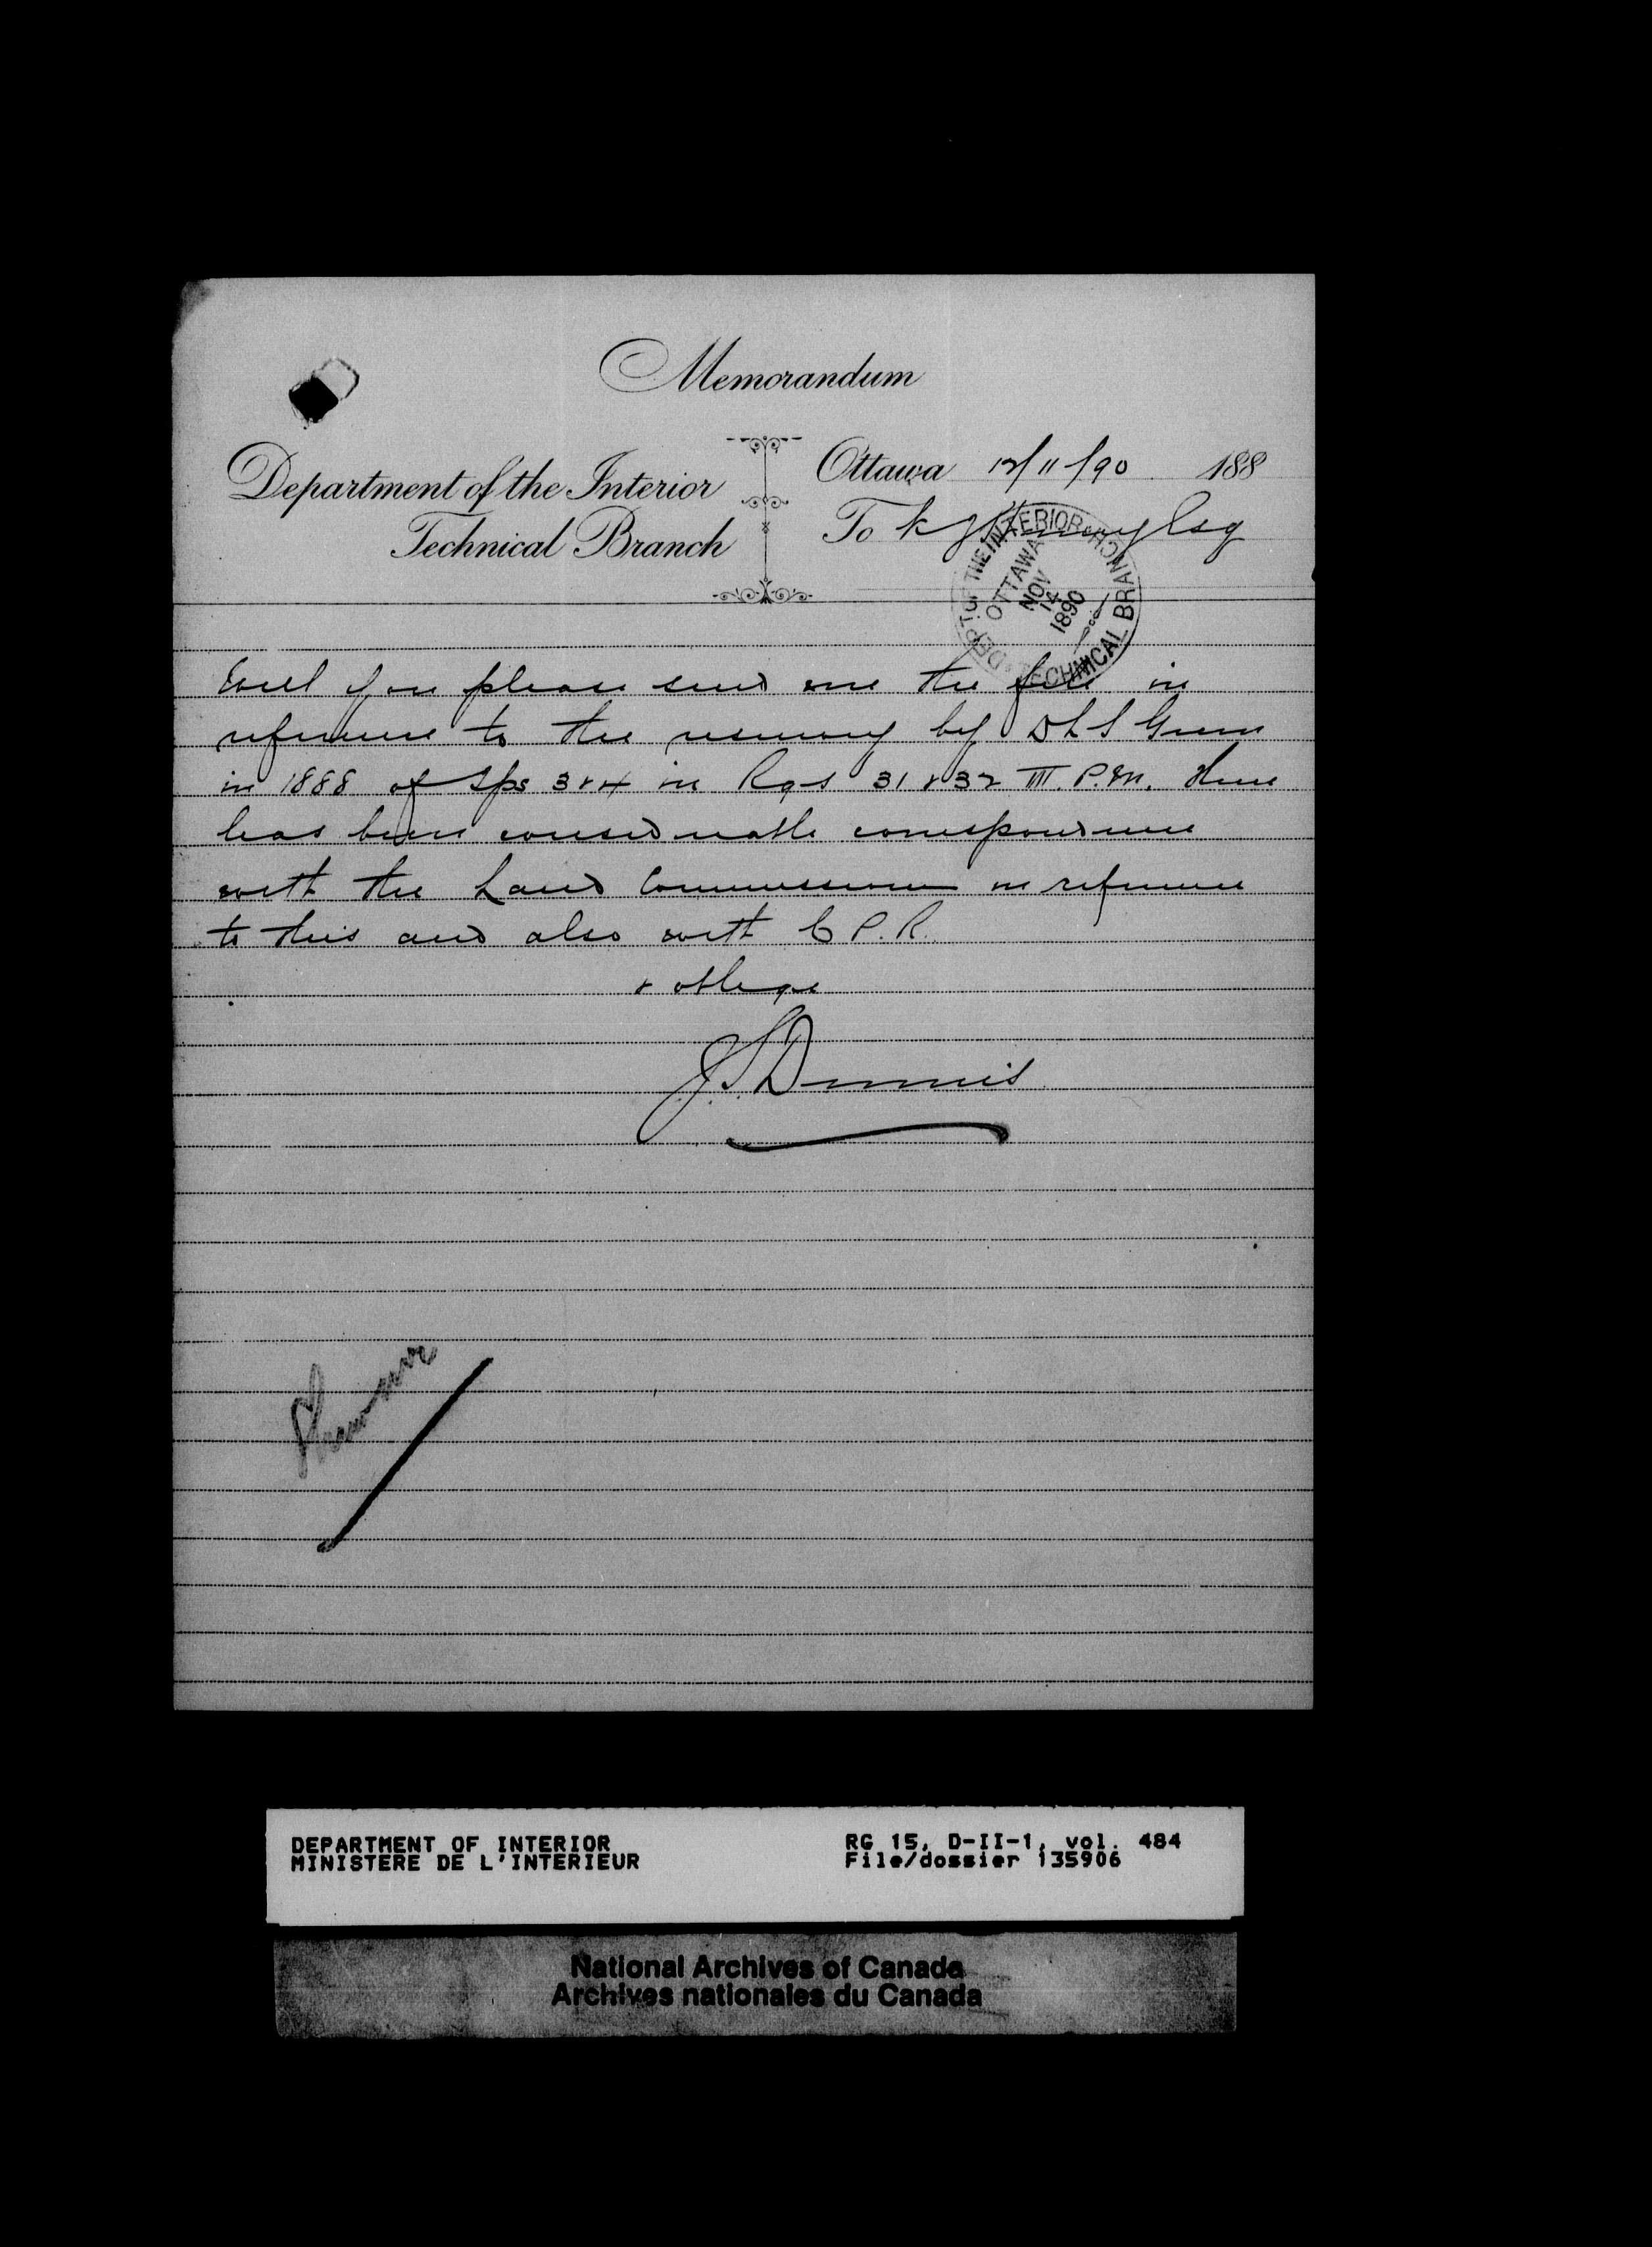 Memorandum
Department of the Interior
Technical Branch
Ottawa 12/11/90 188
To K J Henry Esq
DEPT OF THE INTERIOR
TECHNICAL BRANCH
OTTAWA
NOV
14
1890
Will you please send me the file in
reference to the resurvey by DLS Green
in 1888 of Tps 3 & 4 in Rgs 31 & 32 III. P.M. there
has been considerable correspondence
with the Land Commissioner in reference
to this and also with C P. R.
& oblige
J.S. Dennis
DEPARTMENT OF INTERIOR
MINISTERE DE L'INTERIEUR
RG 15, D-II-1, vol. 484
File/dossier 135906
National Archives of Canada
Archives nationales du Canada